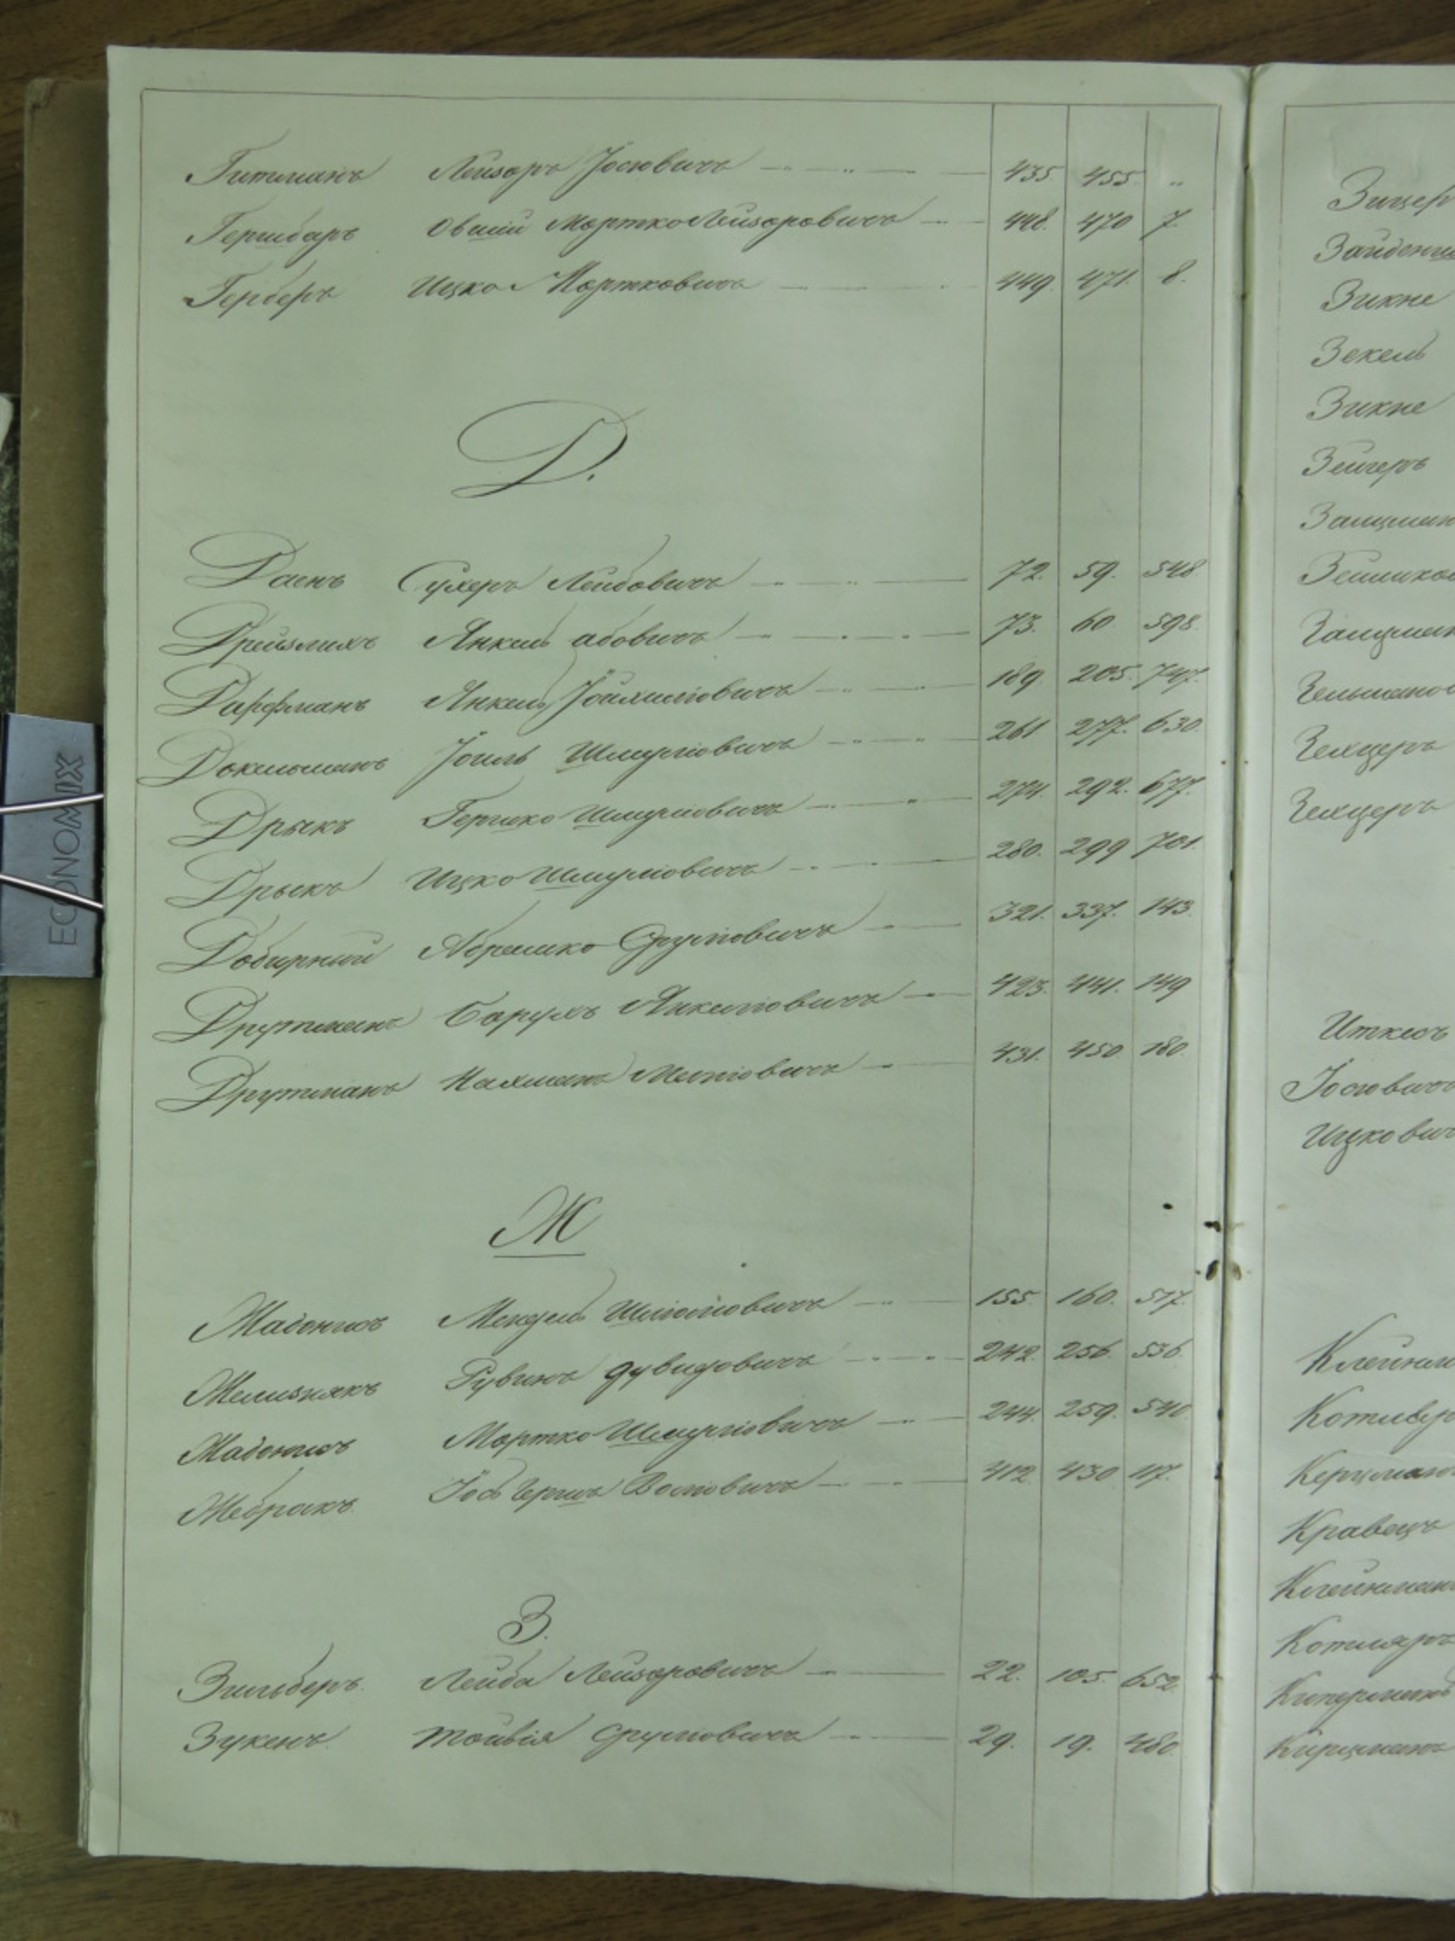 Гитманъ Лейзоръ Іосіовичъ 435. 455. "
Гершбаръ Овшій Мортко Лейзоровичъ 448. 470 7.
Герберъ Ицко Мортковичъ 449. 471. 8.
Д.
Даенъ Сухеръ Лейбовичъ 72. 59. 548
Дрейзлихъ Янкель абовичъ 73. 60 598.
Дарфманъ Янкель 189. 205. 747.
Докельманъ Іоиль Шмуліовичъ 261 277. 630.
Дрыкъ Гершко Шмуліовичъ 274. 292. 677.
Дрыкъ Ицко Шмуліовичъ 280. 299 701.
Добирный Абрамко Сруліовичъ 321. 337. 143.
Друтманъ Борухъ Янкеліовичъ 423. 441. 149
Друтманъ Нахманъ 431. 450 180.
Ж
Жабокичъ Мендель Шліоміовичъ 155. 160. 517.
Желизнякъ Рувинъ Дувидовичъ 242. 256. 536
Жабокичъ Мортко Шмуліовичъ 244. 259. 540
Жебракъ Іосъ Гершъ 412. 430 117.
З.
Зильберъ Лейба Лейзоровичъ 22. 105. 652.
Зукенъ Тойвія Сруліовичъ 29. 19. 480.
Зицер
Зайден
Зикне
Зекель
Зикне
Зейгеръ
Залцман
Зельцеръ
Зельцеръ
Иткесъ
Іосіовичъ
Ицкович
Клейнма
Котляр
Керцман
Кравецъ
Клейнман
Котляръ
Киперманъ
Кирцманъ
ECONOMIX